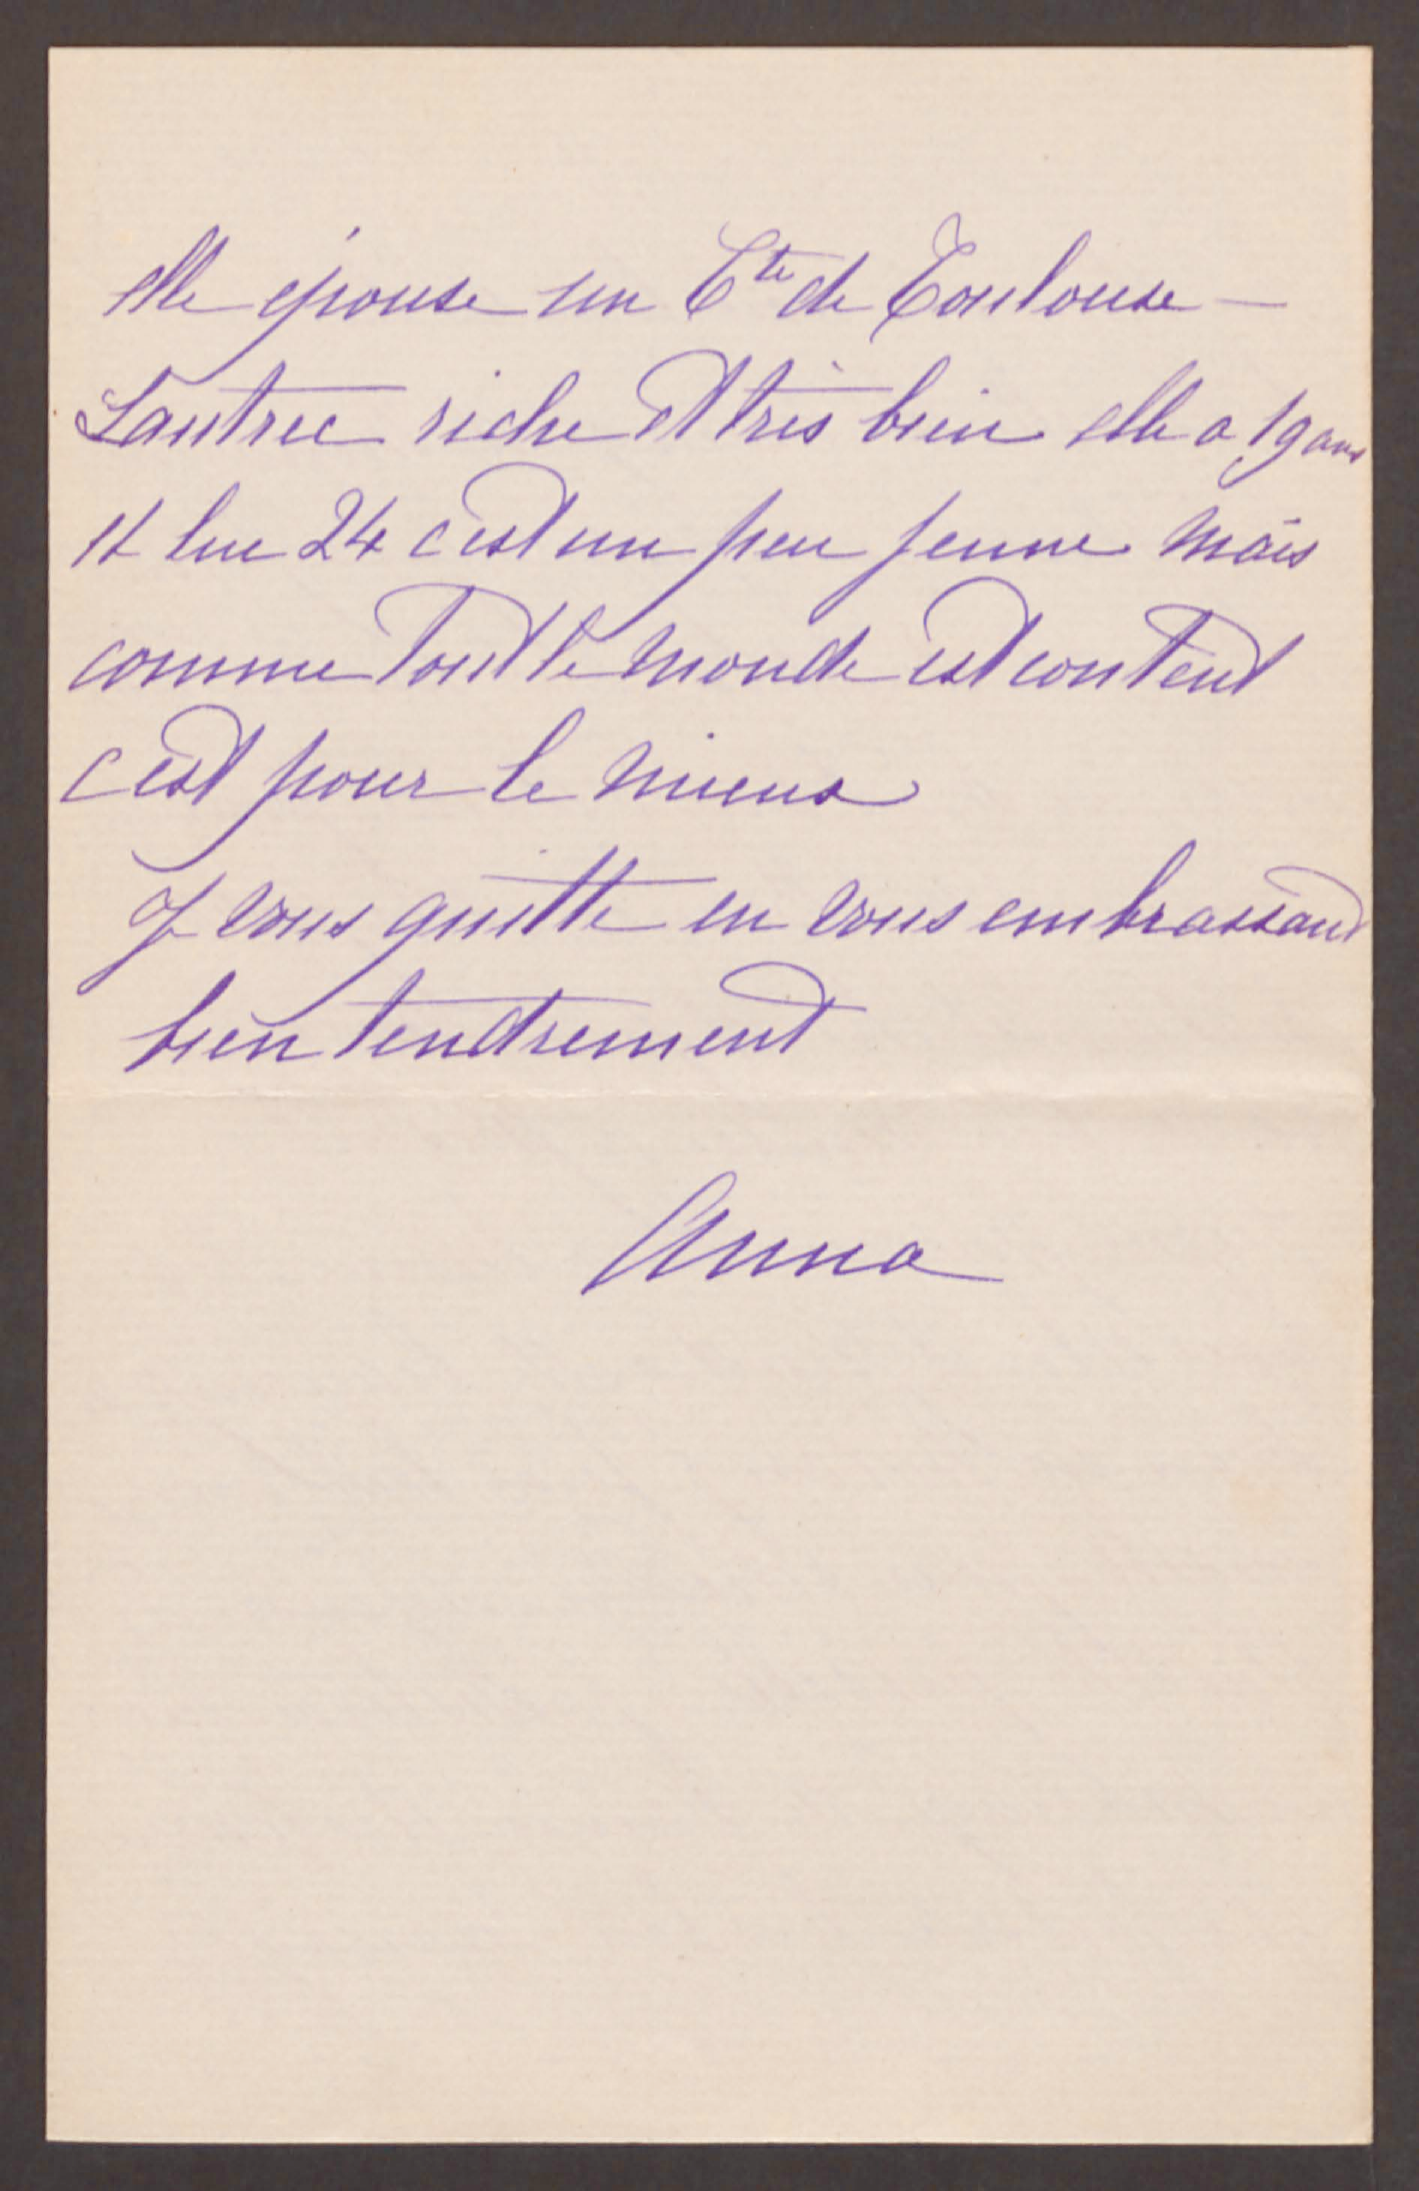 elle épouse un Cte de Toulouse-
Lautrec riche et très bien elle a 19 ans
et lui 24 c'est un peu jeune mais
comme tout le monde est content
c'est pour le mieux
Je vous quitte en vous embrassant
bien tendrement
Anna